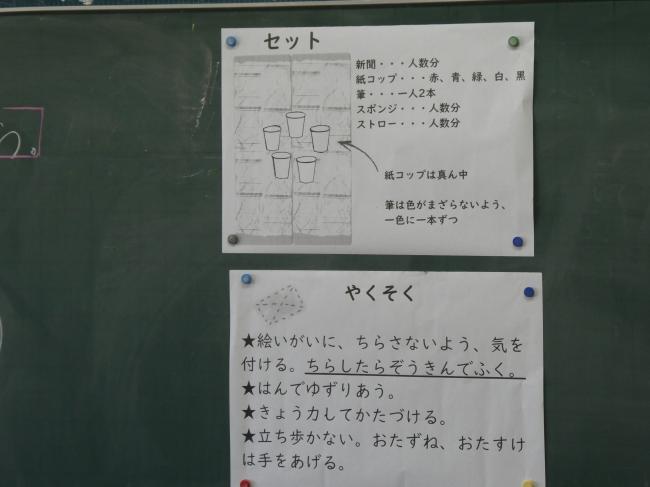 セット
新聞・・・人数分
紙コップ・・・赤、青、緑、白、黒
筆・・・一人2本
スポンジ・・・人数分
ストロー・・・人数分
紙コップは真ん中
筆は色がまざらないよう、
一色に一本ずつ
やくそく
★絵いがいに、ちらさないよう、気を
付ける。ちらしたらぞうきんでふく。
★はんでゆずりあう。
★きょう力してかたづける。
★立ち歩かない。おたずね、おたすけ
は手をあげる。